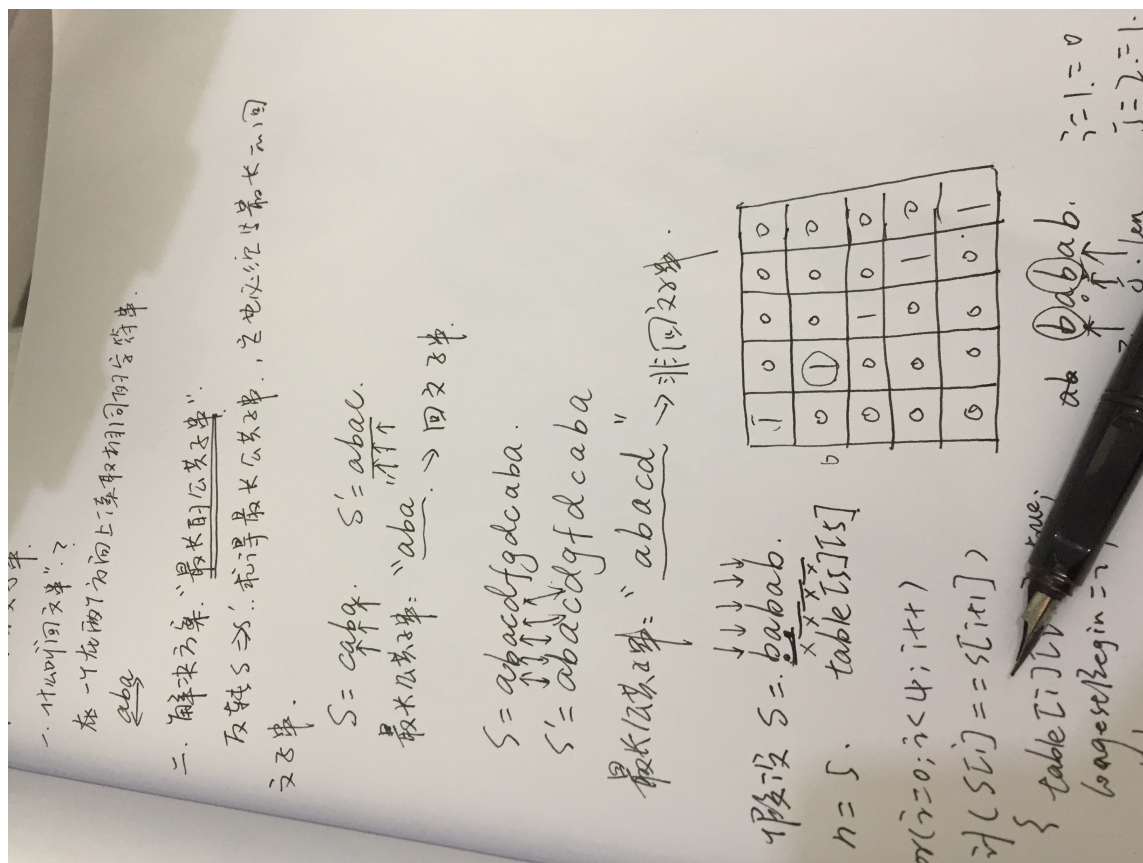 一. 什么叫回文串"?
在一个在两个方向上读取相同的字符串
aba
二. 解决方案. "最长的公共子串".
反转 S ⇒ S'. 求得最长公共子串, 它也必须是最长的回
文子串.
S = caba. S' = abac.
最长公共子串: "aba". → 回文子串
S = abacdfgdcaba.
S' = abacdgfdcaba
最长公共子串: "abacd" → 非回文子串.
假设 S = babab.
n = 5. table[5][5]
b
1 0 0 0 0
0 1 0 0 0
0 0 1 0 0
0 0 0 1 0
0 0 0 0 1
(i=0; i<4; i++)
if (S[i] == S[i+1])
{ table[i][
true;
babab.
len
i=1.=0
j=2.=1.